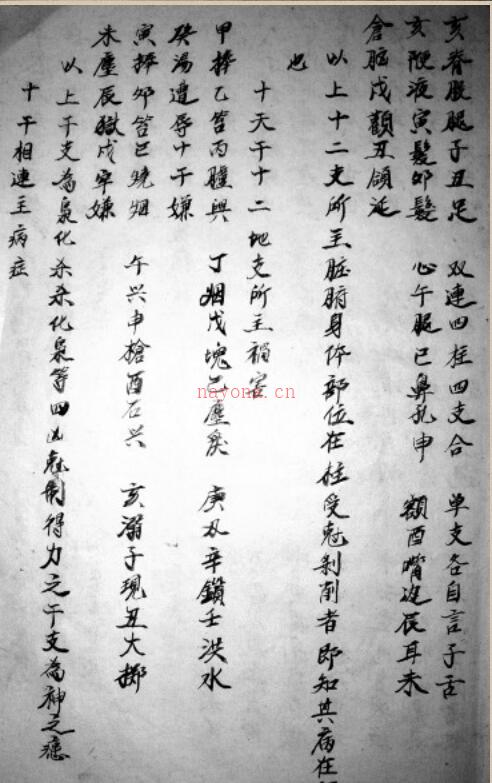 亥脊股腿子丑足 双連四柱四支合 单支各自言子舌
亥 液寅髮卯髮 心午腿巳鼻孔申 額酉嘴 辰耳未
倉脑戌顴丑頜延
以上十二支所主脏腑身体部位在柱受尅剥削者即知其病在
也
十天干十二地支所主禍害
甲棒乙笞丙 興 丁烟戊塊己塵炱 庚刃辛鎖壬洪水
癸湯遭辱十干嫌
寅棒卯笞巳燒烟 午兴申槍酉石兴 亥溺子現丑大擲
未塵辰獄戌牢嫌
以上干支為梟化杀杀化梟等四凶尅制得力之干支為神之
十干相連主病症
nayona.cn